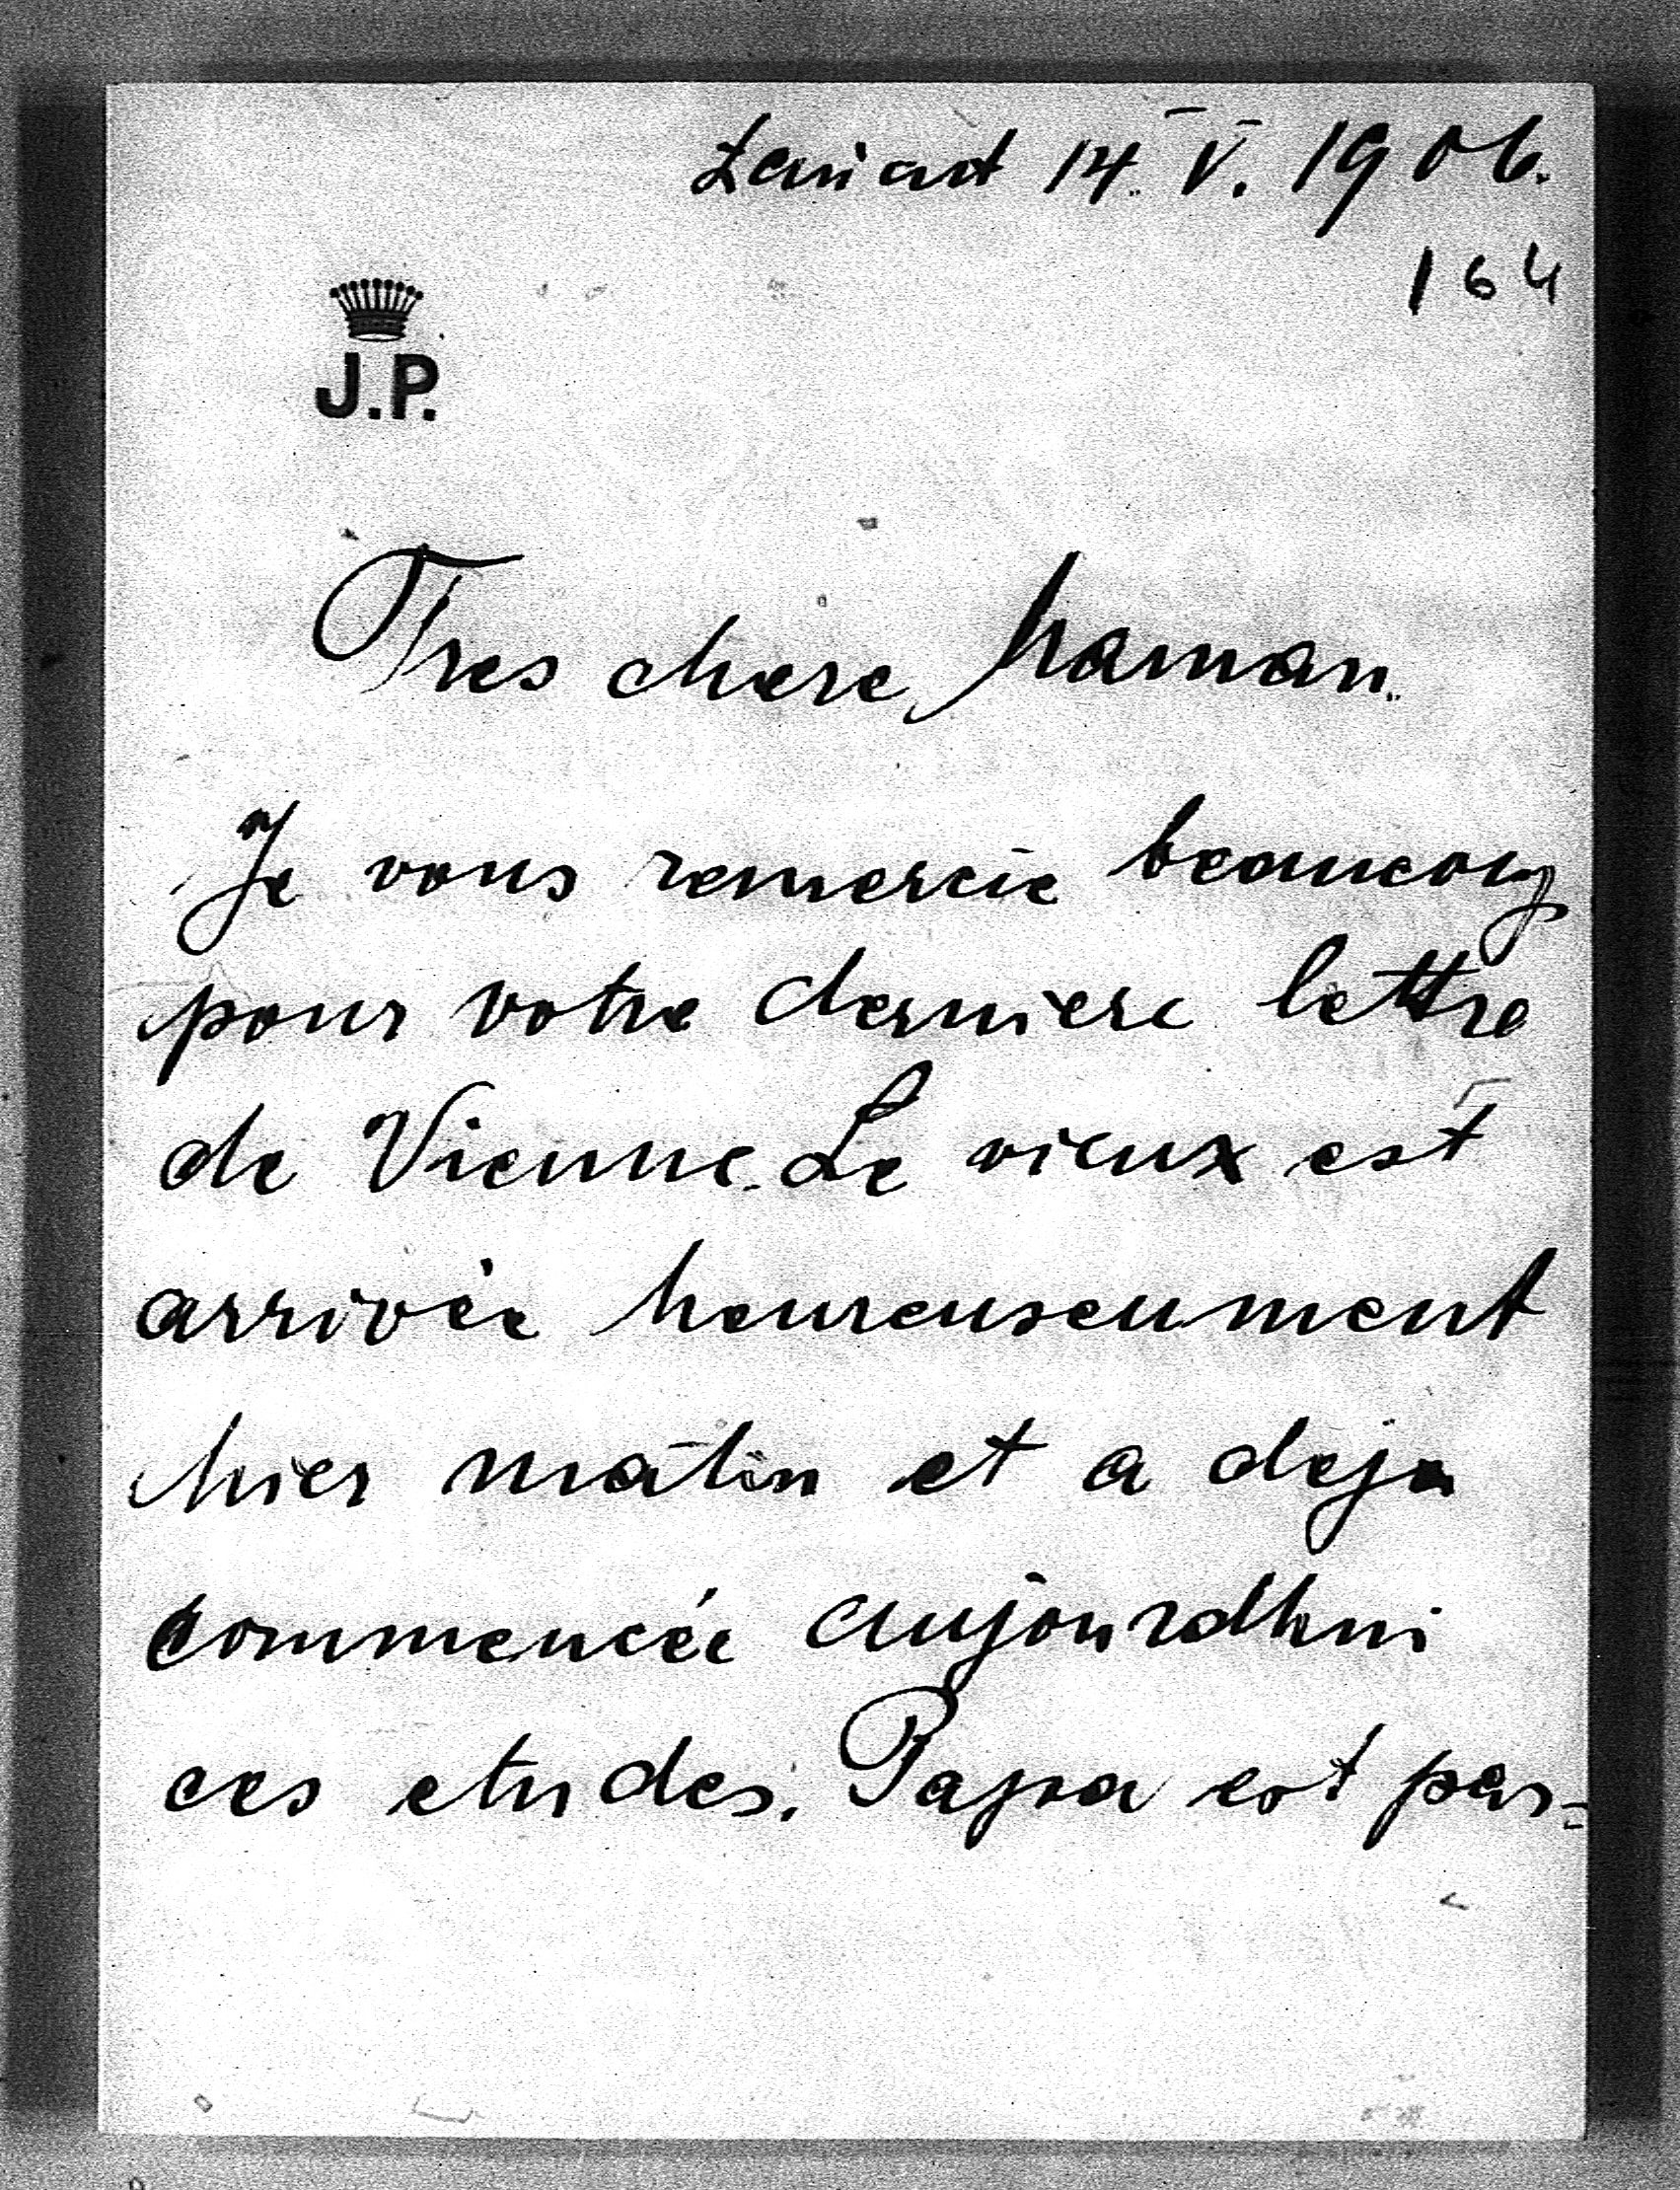 Łańcut 14. V. 1906.
164
J.P.
Tres chere Maman.
Je vous remercie beaucoup
pour votre derniere lettre
de Vienne. Le vieux est
arrivée heureuseument
hier matin et a deja
commencée aujourdhui
ces etudes. Papa est par=